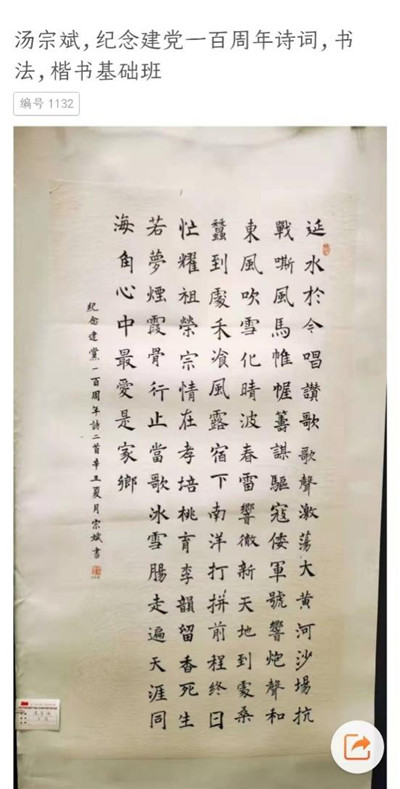 汤宗斌,纪念建党一百周年诗词,书
法,楷书基础班
编号 1132
延水於今唱讚歌歌聲激荡大黄河沙場抗
戰嘶風馬帷幄籌謀驅寇倭軍號響炮聲和
東風吹雪化晴波春雷響徹新天地到處桑
蠶到處禾飡風露宿下南洋打拼前程终日
忙耀祖榮宗情在孝培桃育李韻留香死生
若夢煙霞骨行止當歌冰雪腸走遍天涯同
海角心中最愛是家鄉
紀念建黨一百周年詩二首辛丑夏月宗斌書